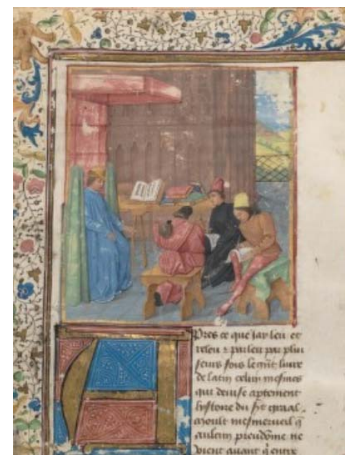 Apres ce que Jay leu et
releu z par leu par plui
seurs fois le gnt liure
de latin celui mesmes
qui deuise aptement
histoire du st graal
moult mesmerueil q
aulcun preudome ne
vient auant q entre